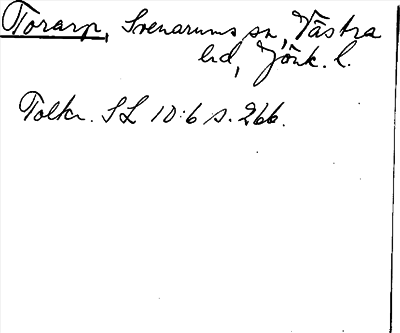 Torarp, Svenarums sn, Västra
hd, Jönk. l.
Tolkn. SL 10:6 s. 266.